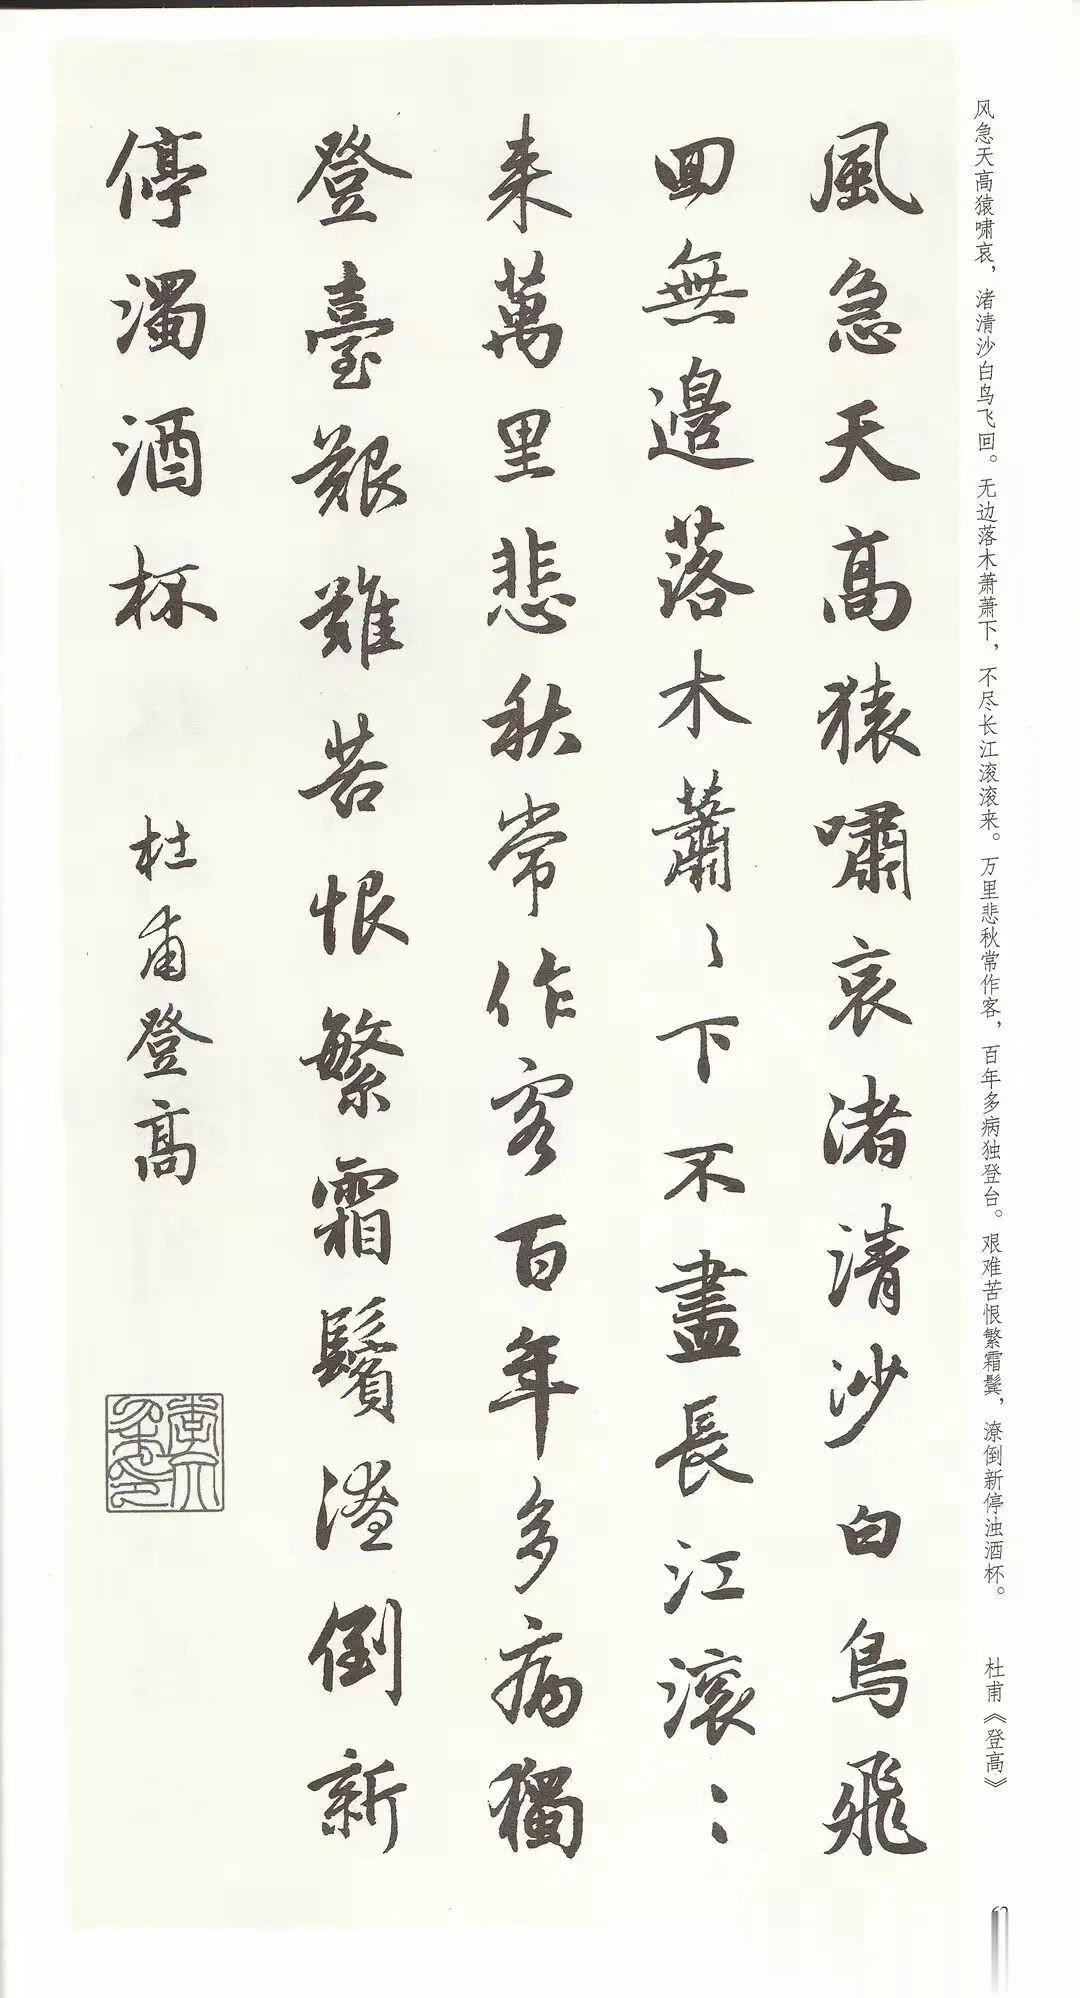 风急天高猿啸哀，渚清沙白鸟飞回。无边落木萧萧下，不尽长江滚滚来。万里悲秋常作客，百年多病独登台。艰难苦恨繁霜鬓，潦倒新停浊酒杯。 杜甫《登高》
風急天高猿嘯哀渚清沙白鳥飛
回無邊落木蕭〻下不盡長江滚〻
来萬里悲秋常作客百年多病獨
登臺艱難苦恨繁霜鬢潦倒新
停濁酒杯 杜甫登高